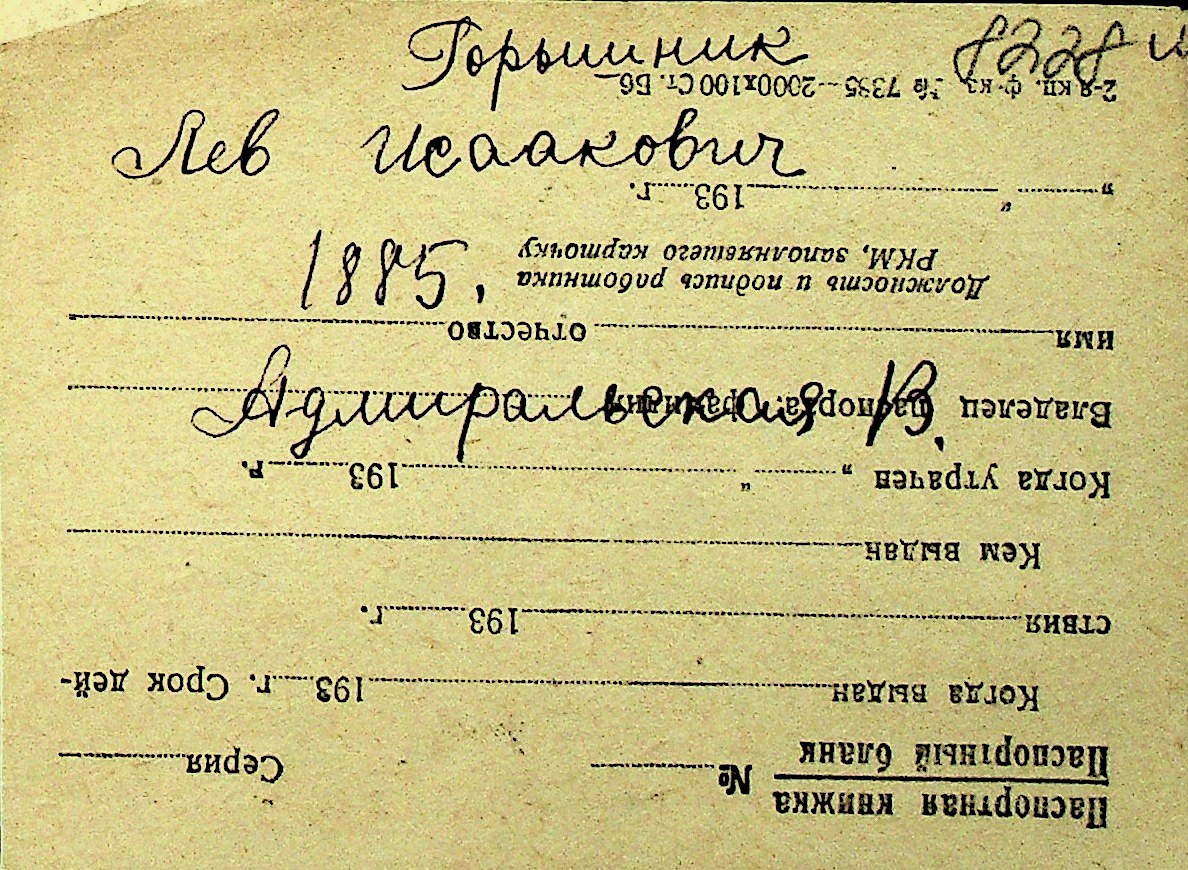 Горышник
8228
Лев Исаакович
1885.
Адмиральская В.
Паспортная книжка
Паспортный бланк
№ Серия
Когда выдан 193 г. Срок дей-
ствия 193 г.
Кем выдан
Когда утрачен „ " 193 г.
Владелец паспорта: фамилия
имя отчество
Должность и подпись работника
РКМ, заполнявшего карточку
„ " 193 г.
2-я кп. ф-ка № 7385—2000х100 Ст. Б6